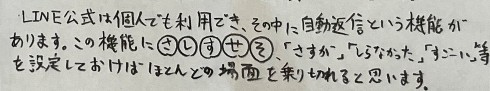 LINE公式は個人でも利用でき、その中に自動返信という機能が
あります。この機能にさしすせそ、「さすが」、「しらなかった」、「すごーい」、等
を設定しておけばほとんどの場面を乗り切れると思います。